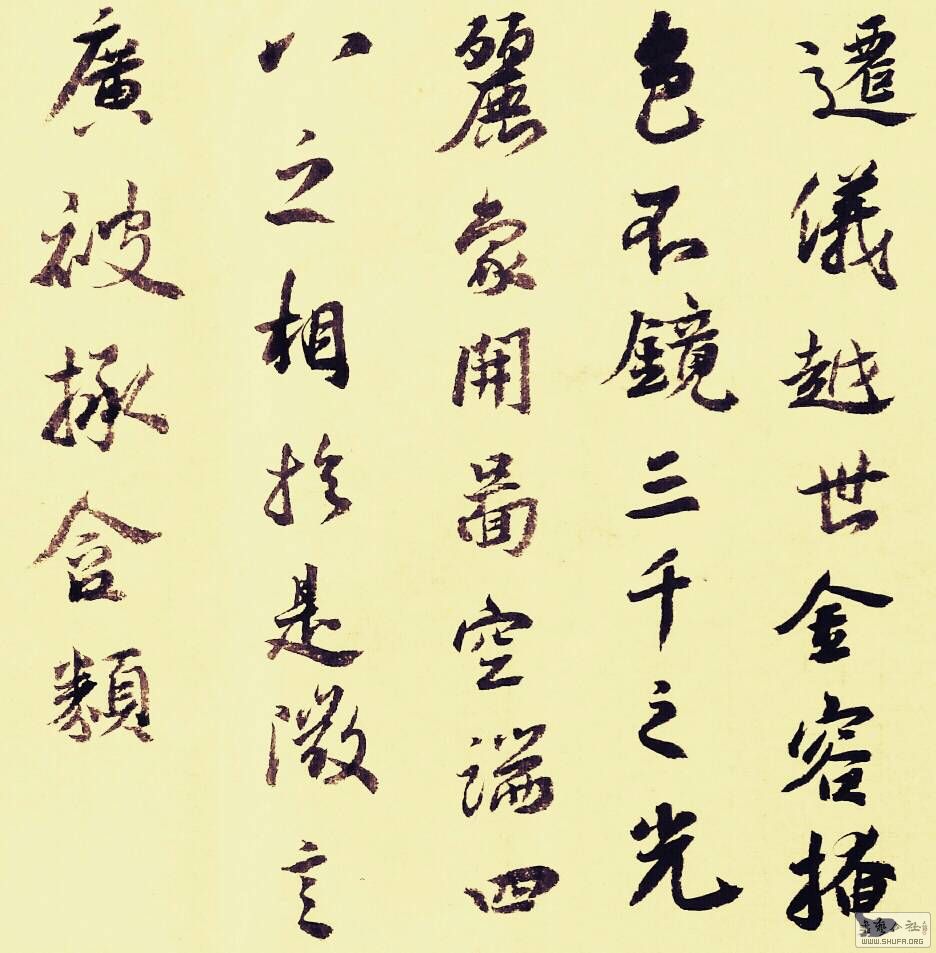 遷儀越世金容掩
色不鏡三千之光
麗象開圖空端四
八之相於是微言
廣被拯含類
書法公社
WWW.SHUFA.ORG